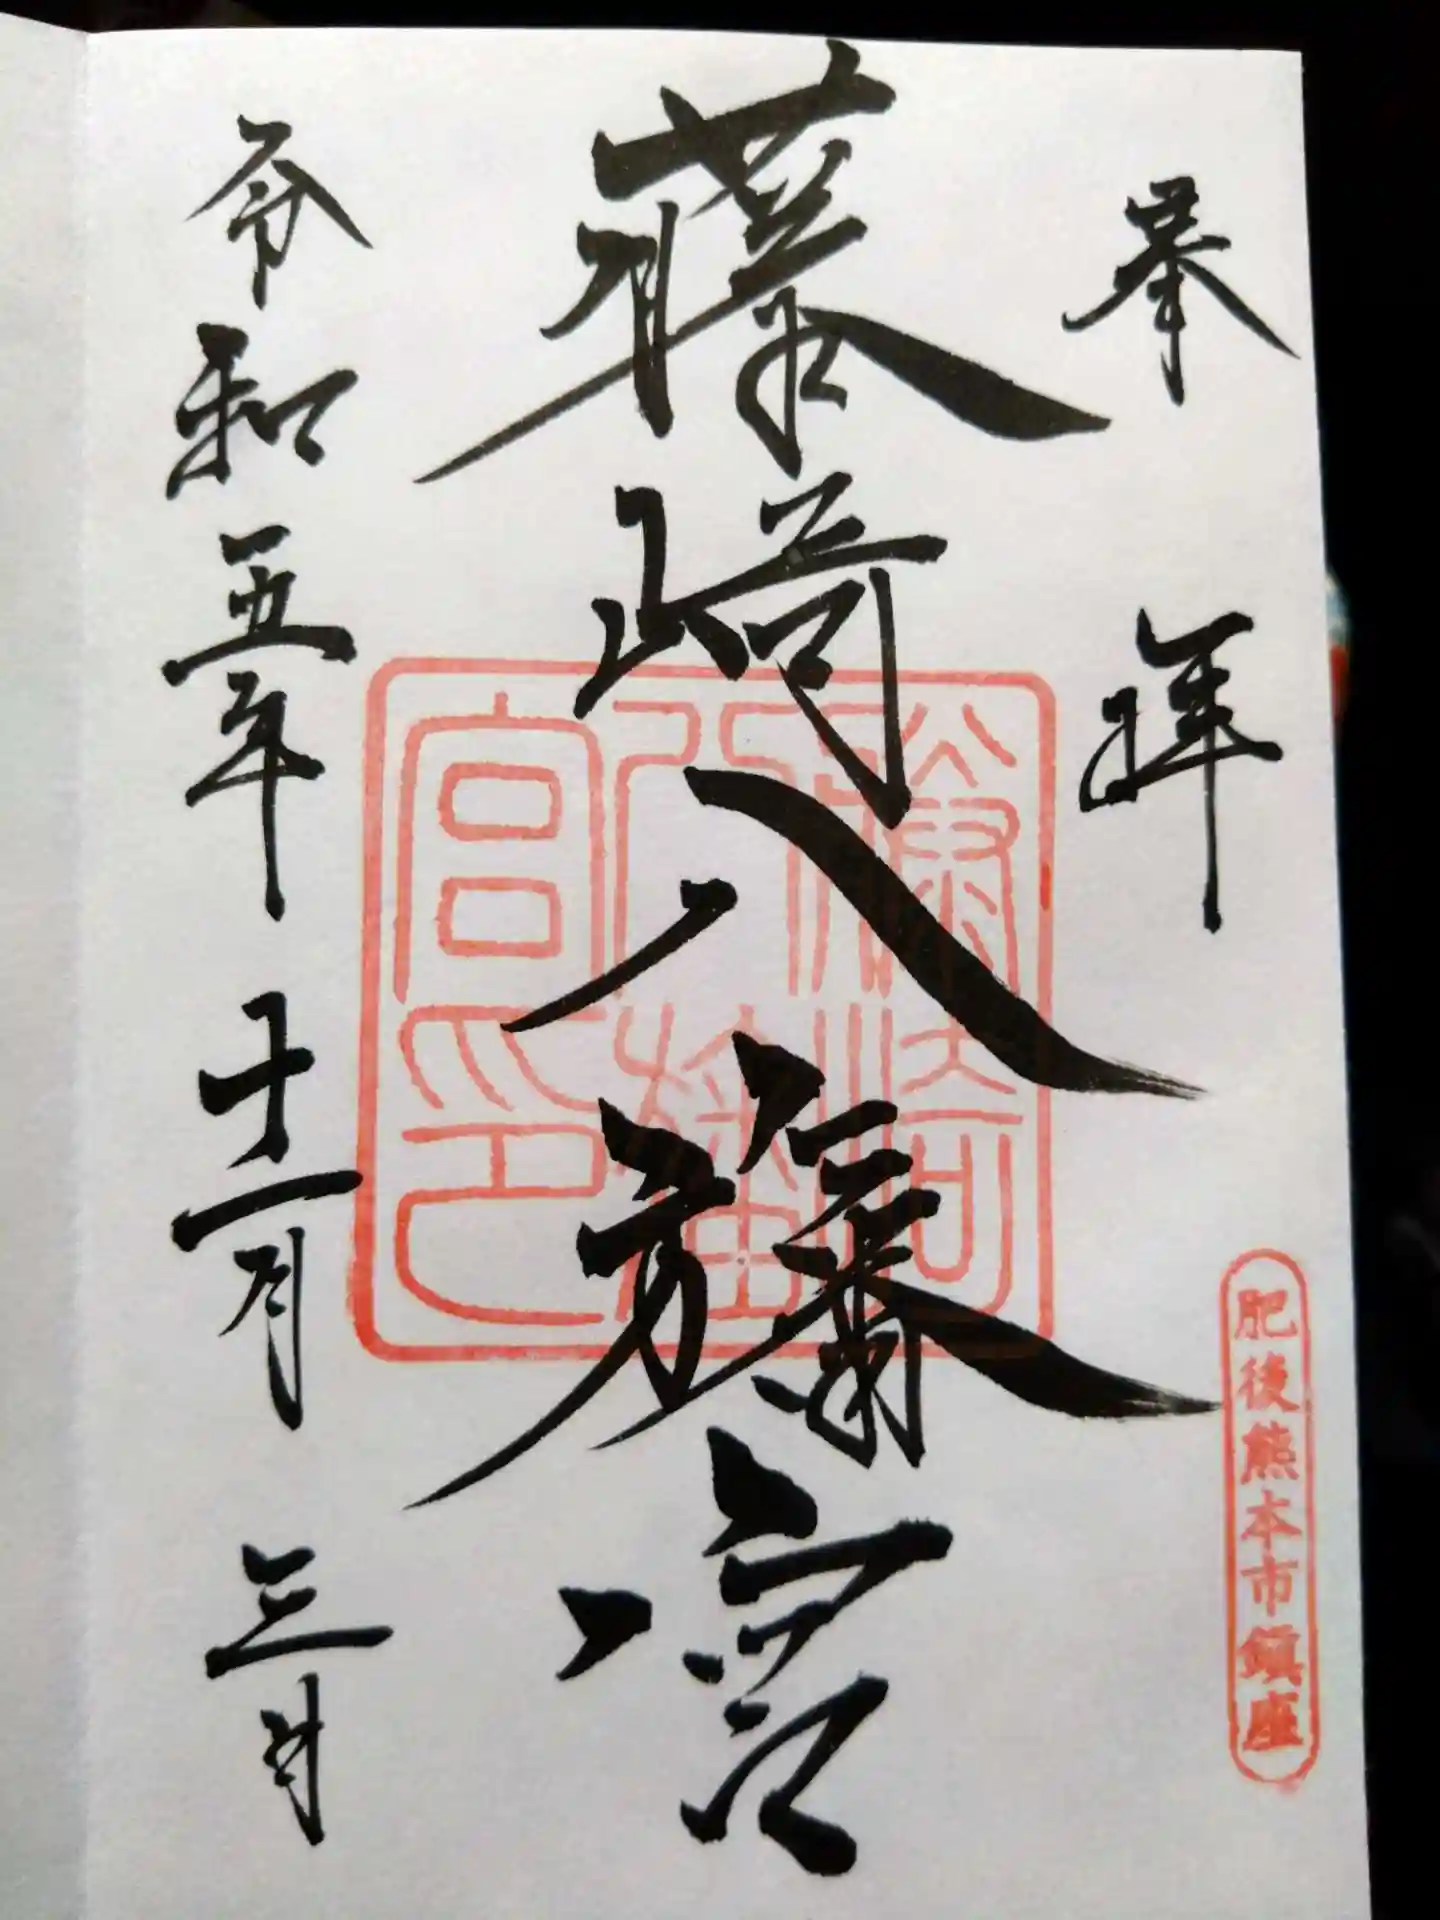 奉拝
肥後熊本市鎮座
藤崎八旛宮
藤崎
八旛
宮印
令和五年十一月三日